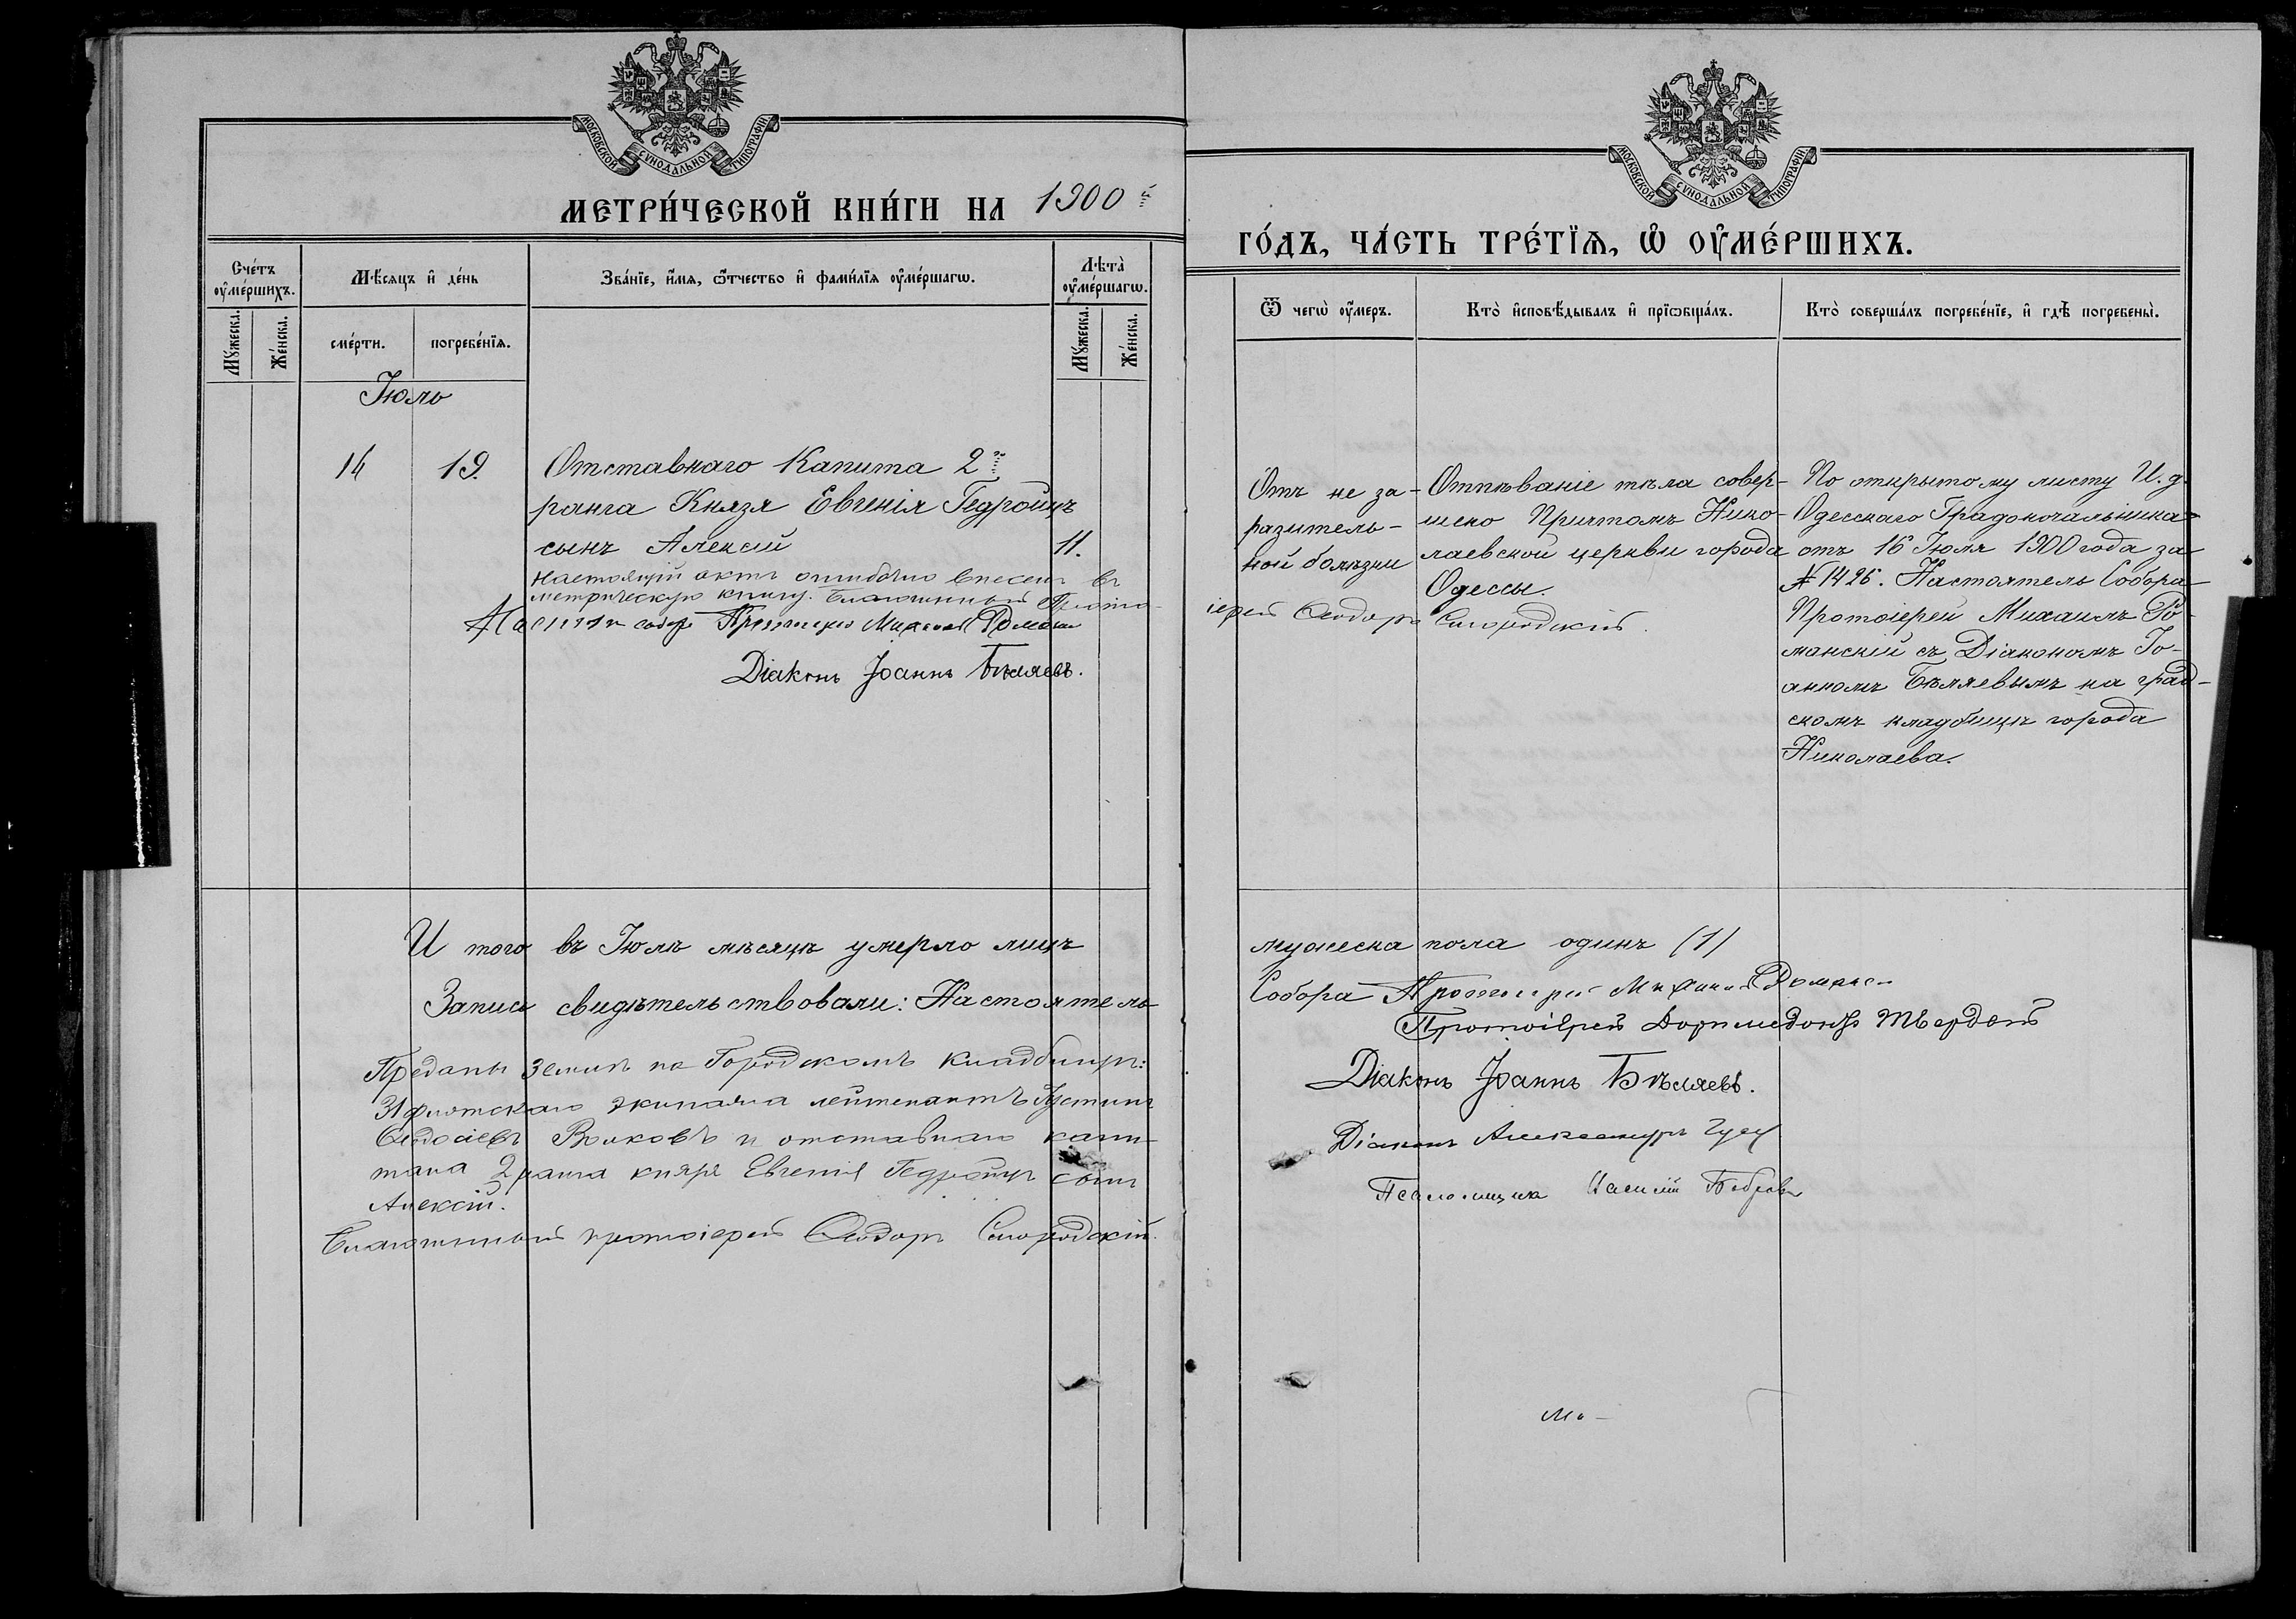 МОСКОВСКОЙ СѴНОДАЛЬНОЙ ТИПОГРАФІИ
МЕТРИ́ЧЕСКОЙ КНИ́ГИ НА 1900й
Сче́тъ оу҆ме́ршихъ.
Мѣ́сяцъ и҆ де́нь
Зва́нїе, и҆́мя, ѻ҆́тчество и҆ фами́лїя оу҆ме́ршагѡ.
Лѣта̀ оу҆ме́ршагѡ.
Мꙋ́жеска.
Же́нска.
сме́рти.
погребе́нїѧ.
Мꙋ́жеска.
Же́нска.
Іюль
14
19.
Отставнаго Капита 2го
ранга Князя Евгенія Гедройцъ
сынъ Алексій
11.
Настоящій актъ ошибочно внесенъ въ
метрическую книгу. Благочинный Прото-
Діаконъ Іоаннъ Бѣляевъ.
И того въ Іюлѣ мѣсяцѣ умерло лицъ
Запись свидѣтельствовали: Настоятель
Преданы землѣ на Городскомъ кладбищѣ:
31 флотскаго экипажа лейтенантъ Іустинъ
Ѳеодосіевъ Волковъ и отставнаго капи-
тана 2 ранга князя Евгенія Гедройцъ сынъ
Алексій.
Благочинный протоіерей Ѳеодоръ
МОСКОВСКОЙ СѴНОДАЛЬНОЙ ТИПОГРАФІИ
ГО́ДЪ, ЧА́СТЬ ТРЕ́ТЇѦ, Ѡ҆ ОУ҆МЕ́РШИХЪ.
Ѿ чегѡ̀ оу҆́меръ.
Кто̀ и҆сповѣ́дывалъ и҆ прїѡбща́лъ.
Кто̀ соверша́лъ погребе́нїе, и҆ гдѣ̀ погребены̀.
Отъ не за-
разитель-
ной болѣзни
Отпѣваніе тѣла совер-
шено Причтомъ Нико-
лаевской церкви города
Одессы.
іерей Ѳеодоръ
По открытому листу И. д.
Одесскаго Градоначальника
отъ 16 Іюля 1900 года за
№ 1425. Настоятель Собора
Протоіерей Михаилъ Ро-
манскій съ Діакономъ Іо-
анномъ Бѣляевымъ на град-
скомъ кладбищѣ города
Николаева.
мужеска пола одинъ (1)
Собора Протоіерей Михаилъ
Протоіерей Доримедонтъ Твердой
Діаконъ Іоаннъ Бѣляевъ.
Діаконъ Александръ
Псаломщикъ Василій Бобровъ